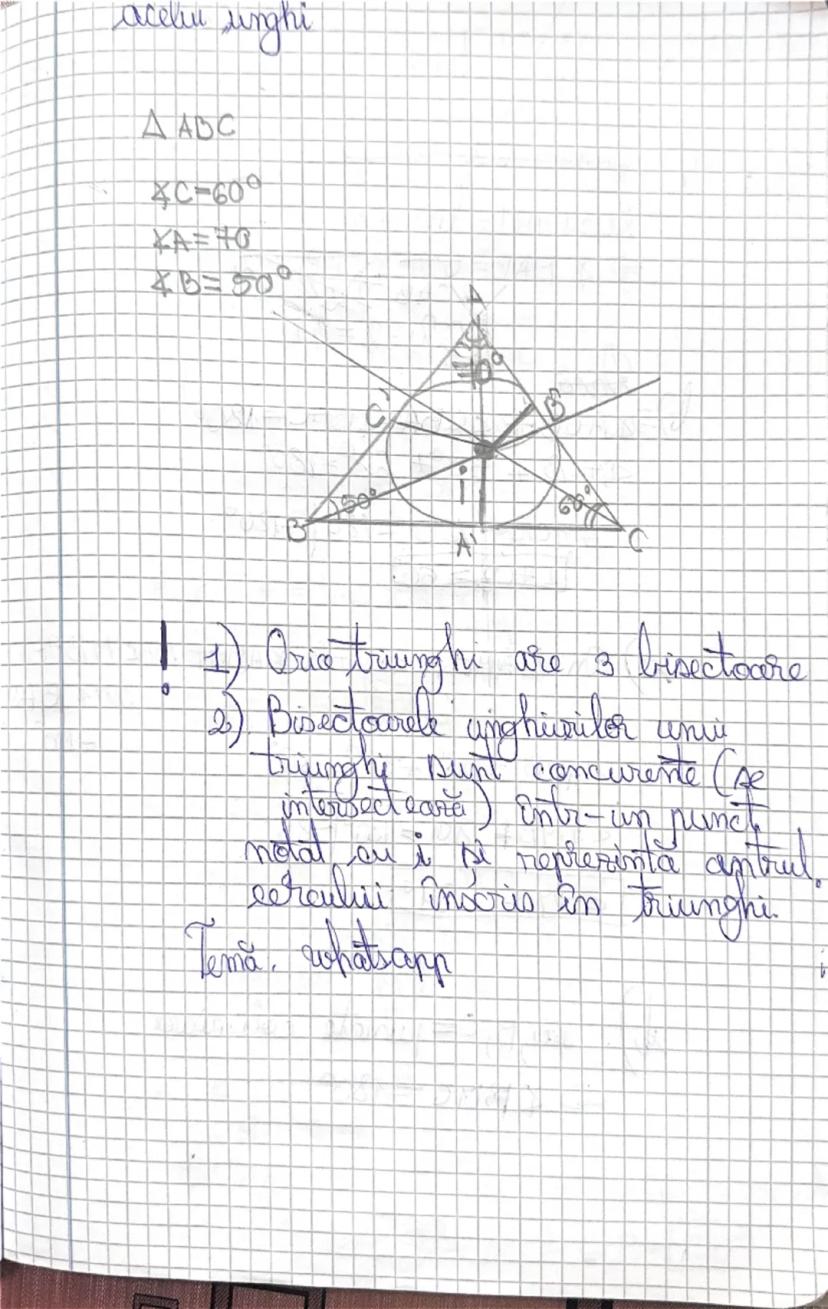 acelui unghi
Δ ABC
∢C=60°
∢A=70
∢B=50°
A
70°
C'
B'
i
50°
60°
B
A'
C
! 1) Orice triunghi are 3 bisectoare
2) Bisectoarele unghiurilor unui
triunghi sunt concurente (se
intersectează) într-un punct
notat cu i și reprezintă centrul
cercului înscris în triunghi.
Temă. whatsapp